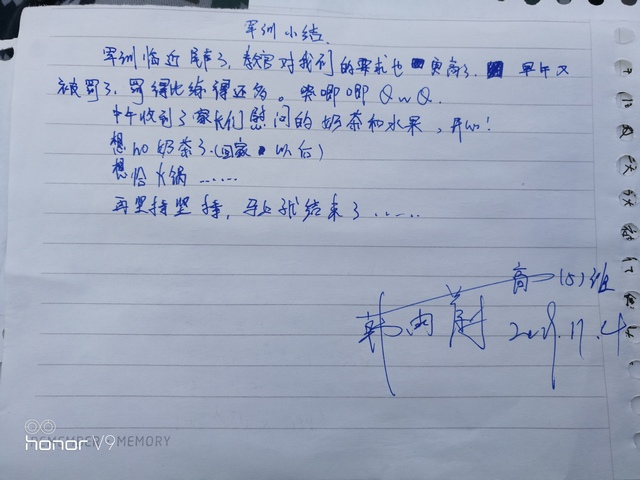 军训小结.
军训临近尾声了,教官对我们的要求也更高了.早午又
被罚了,罚得比练得还多。嘤唧唧QwQ.
中午收到了家长们慰问的奶茶和水果,开心!
想ho奶茶了.(回家以后)
想恰火锅……
再坚持坚持,马上就结束了……
高一(5)班
韩雨蔚 2019.11.4
honor V9
REMEMBER MEMORY